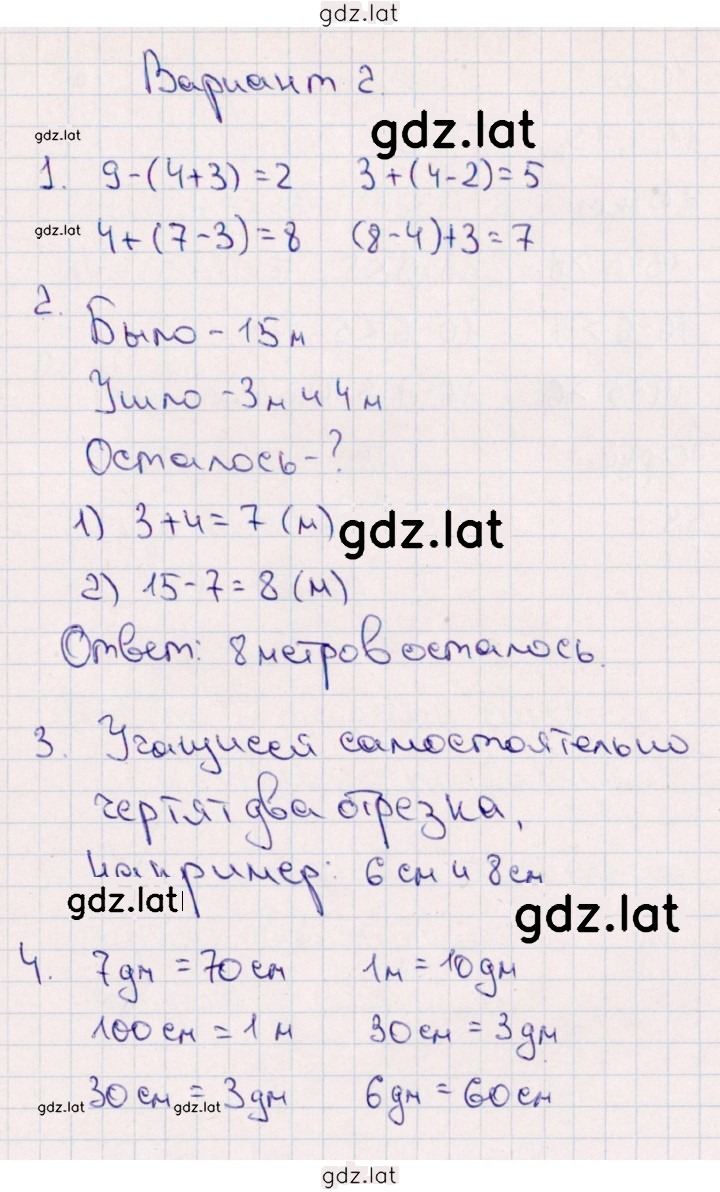 gdz.lat
Вариант 2
gdz.lat
gdz.lat
1. 9-(4+3)=2 3+(4-2)=5
gdz.lat
4+(7-3)=8 (8-4)+3=7
2.
Было - 15 м
Ушло - 3 м и 4 м
Осталось - ?
1) 3+4=7 (м)
gdz.lat
2) 15-7=8 (м)
Ответ: 8 метров осталось.
3. Учащиеся самостоятельно
чертят два отрезка,
например: 6 см и 8 см
gdz.lat
gdz.lat
4. 7 дм = 70 см 1 м = 10 дм
100 см = 1 м 30 см = 3 дм
gdz.lat 30 см = 3 дм 6 дм = 60 см
gdz.lat
gdz.lat